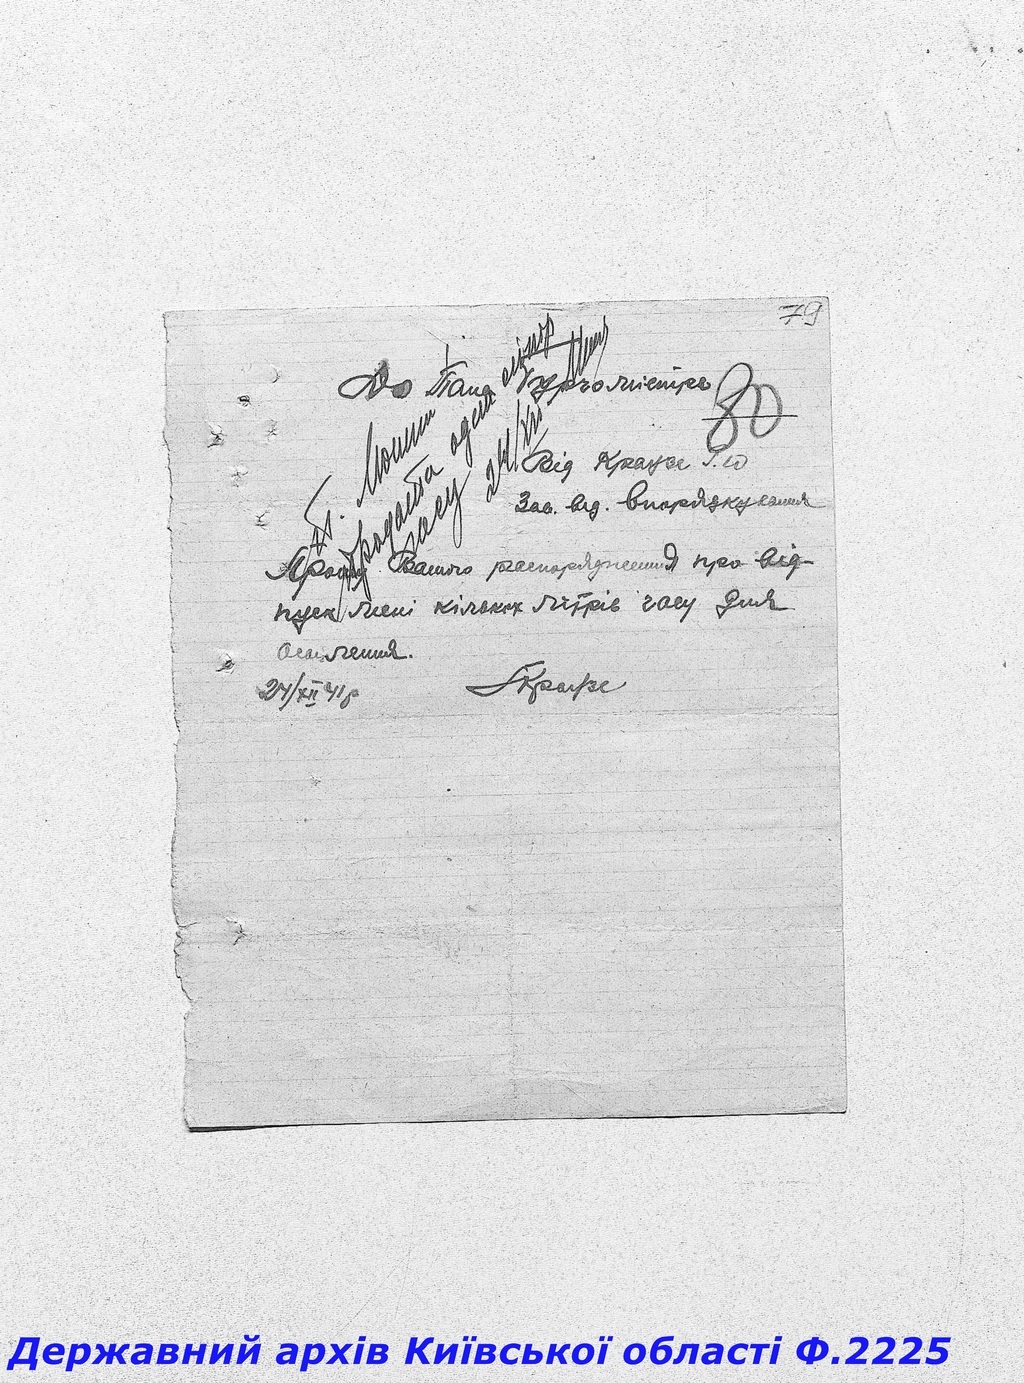 79
До Пана Бургомістра
80
Від Краузе
Зав. від. Впорядкування
Прошу Вашого распорядження про від-
пуск мені кількох літрів гасу для
освітлення.
24/XII 41р Краузе
продайте один літр
гасу 24/XII
Державний архів Київської області Ф.2225